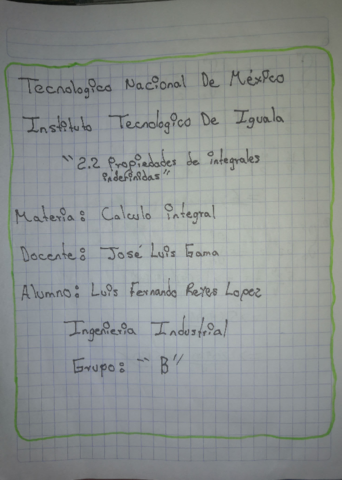 Tecnologico Nacional De México
Instituto Tecnologico De Iguala
"2.2 Propiedades de integrales
indefinidas"
Materia: Calculo integral
Docente: José Luis Gama
Alumno: Luis Fernando Reyes Lopez
Ingenieria Industrial
Grupo: "B"